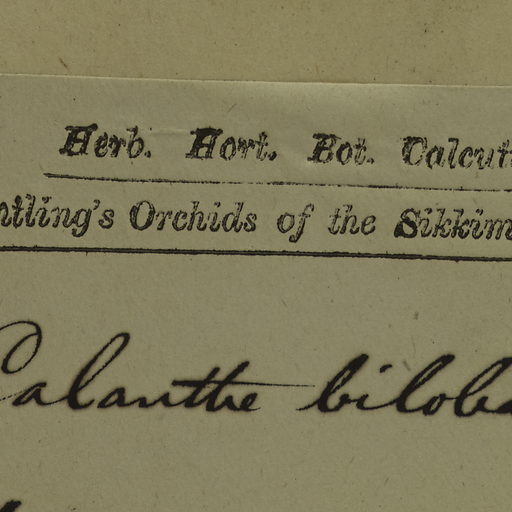 Herb. Hort. Bot. Calcut
ntling's Orchids of the Sikkim
Calanthe biloba